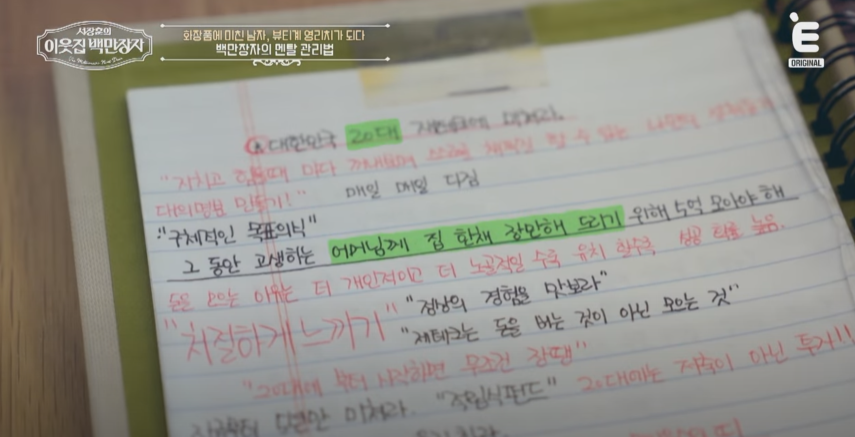 서장훈의
이웃집 백만장자
The Millionaire Next Door
화장품에 미친 남자, 뷰티계 영리치가 되다
백만장자의 멘탈 관리법
E
ORIGINAL
대한민국 20대
"지치고 힘들때 마다 수 있는 나만의
대의명분 만들기!" 매일 매일 다짐
"구체적인 목표의식"
그 동안 고생하는 어머님께 집 한채 장만해 드리기 위해 5억 모아야 해
돈을 모으는 이유는 더 개인적이고 더 노골적일 수록 유치 할수록 성공 확률 높음.
"처절하게 느끼기" "정상의 경험을 맛보라"
"재테크는 돈을 버는 것이 아닌 모으는 것"
"20대에 부터 시작하면 무조건 장땡"
지금부터 5년만 미쳐라. "적립식펀드" 20대에는 저축이 아닌 투자!!